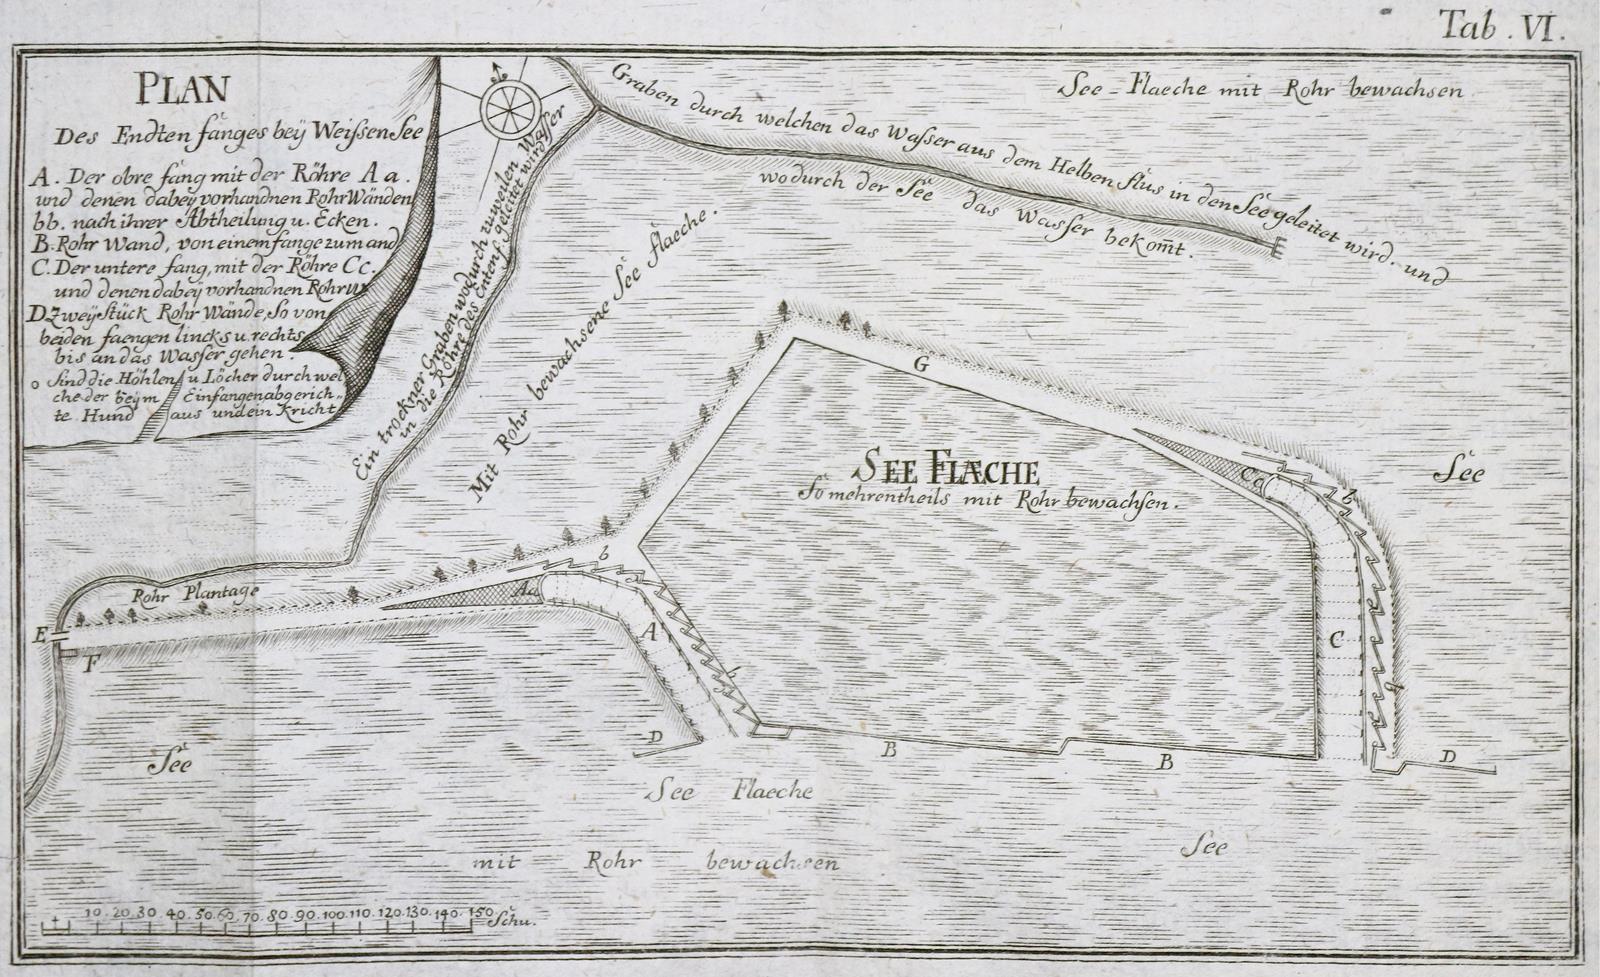 Tab. VI.
PLAN
Des Endten fanges beÿ WeissenSee
A. Der obre fang mit der Röhre A a.
und denen dabeÿ vorhandnen RohrWänden
bb. nach ihrer Abtheilung u. Ecken.
B. Rohr Wand, von einem fange zum and
C. Der untere fang, mit der Röhre Cc.
und denen dabeÿ vorhandnen Rohr
D. Zweÿ Stück Rohr Wände, So von
beiden faengen lincks u. rechts
bis an das Wasser gehen.
o Sind die Höhlen u Löcher durch wel
che der beym Einfangen abgerich„
te Hund aus und ein kricht
Ein trockner Graben wodurch zuweilen Wasser
in die Röhre des Entenf. geleitet wird.
Mit Rohr bewachsene See flaeche.
Graben durch welchen das Wasser aus dem Helben flus in den See geleitet wird. und
wodurch der See das Wasser bekom̄t.
See-Flaeche mit Rohr bewachsen
E
G
SEE FLÆCHE
So mehrentheils mit Rohr bewachsen.
See
Cc
b
b
Rohr Plantage
Aa
E
F
A
b
C
b
See
D
B
B
D
See Flaeche
mit Rohr bewachsen
See
10. 20. 30. 40. 50. 60. 70. 80. 90. 100. 110. 120. 130. 140. 150 Schu.